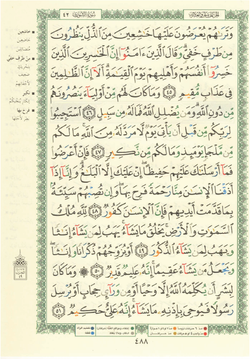 وَتَرَىٰهُمْ يُعْرَضُونَ عَلَيْهَا خَٰشِعِينَ مِنَ ٱلذُّلِّ يَنظُرُونَ
مِن طَرْفٍ خَفِىٍّ وَقَالَ ٱلَّذِينَ ءَامَنُوٓا۟ إِنَّ ٱلْخَٰسِرِينَ ٱلَّذِينَ
خَسِرُوٓا۟ أَنفُسَهُمْ وَأَهْلِيهِمْ يَوْمَ ٱلْقِيَٰمَةِ أَلَآ إِنَّ ٱلظَّٰلِمِينَ
فِى عَذَابٍ مُّقِيمٍ ٤٥ وَمَا كَانَ لَهُم مِّنْ أَوْلِيَآءَ يَنصُرُونَهُم
مِّن دُونِ ٱللَّهِ وَمَن يُضْلِلِ ٱللَّهُ فَمَا لَهُۥ مِن سَبِيلٍ ٤٦ ٱسْتَجِيبُوا۟
لِرَبِّكُم مِّن قَبْلِ أَن يَأْتِىَ يَوْمٌ لَّا مَرَدَّ لَهُۥ مِنَ ٱللَّهِ مَا لَكُم
مِّن مَّلْجَإٍ يَوْمَئِذٍ وَمَا لَكُم مِّن نَّكِيرٍ ٤٧ فَإِنْ أَعْرَضُوا۟
فَمَآ أَرْسَلْنَٰكَ عَلَيْهِمْ حَفِيظًا إِنْ عَلَيْكَ إِلَّا ٱلْبَلَٰغُ وَإِنَّآ إِذَآ
أَذَقْنَا ٱلْإِنسَٰنَ مِنَّا رَحْمَةً فَرِحَ بِهَا وَإِن تُصِبْهُمْ سَيِّئَةٌۢ
بِمَا قَدَّمَتْ أَيْدِيهِمْ فَإِنَّ ٱلْإِنسَٰنَ كَفُورٌ ٤٨ لِّلَّهِ مُلْكُ
ٱلسَّمَٰوَٰتِ وَٱلْأَرْضِ يَخْلُقُ مَا يَشَآءُ يَهَبُ لِمَن يَشَآءُ إِنَٰثًا
وَيَهَبُ لِمَن يَشَآءُ ٱلذُّكُورَ ٤٩ أَوْ يُزَوِّجُهُمْ ذُكْرَانًا وَإِنَٰثًا
وَيَجْعَلُ مَن يَشَآءُ عَقِيمًا إِنَّهُۥ عَلِيمٌ قَدِيرٌ ٥٠ وَمَا كَانَ
لِبَشَرٍ أَن يُكَلِّمَهُ ٱللَّهُ إِلَّا وَحْيًا أَوْ مِن وَرَآئِ حِجَابٍ أَوْ يُرْسِلَ
رَسُولًا فَيُوحِىَ بِإِذْنِهِۦ مَا يَشَآءُ إِنَّهُۥ عَلِىٌّ حَكِيمٌ ٥١
٤٨٨